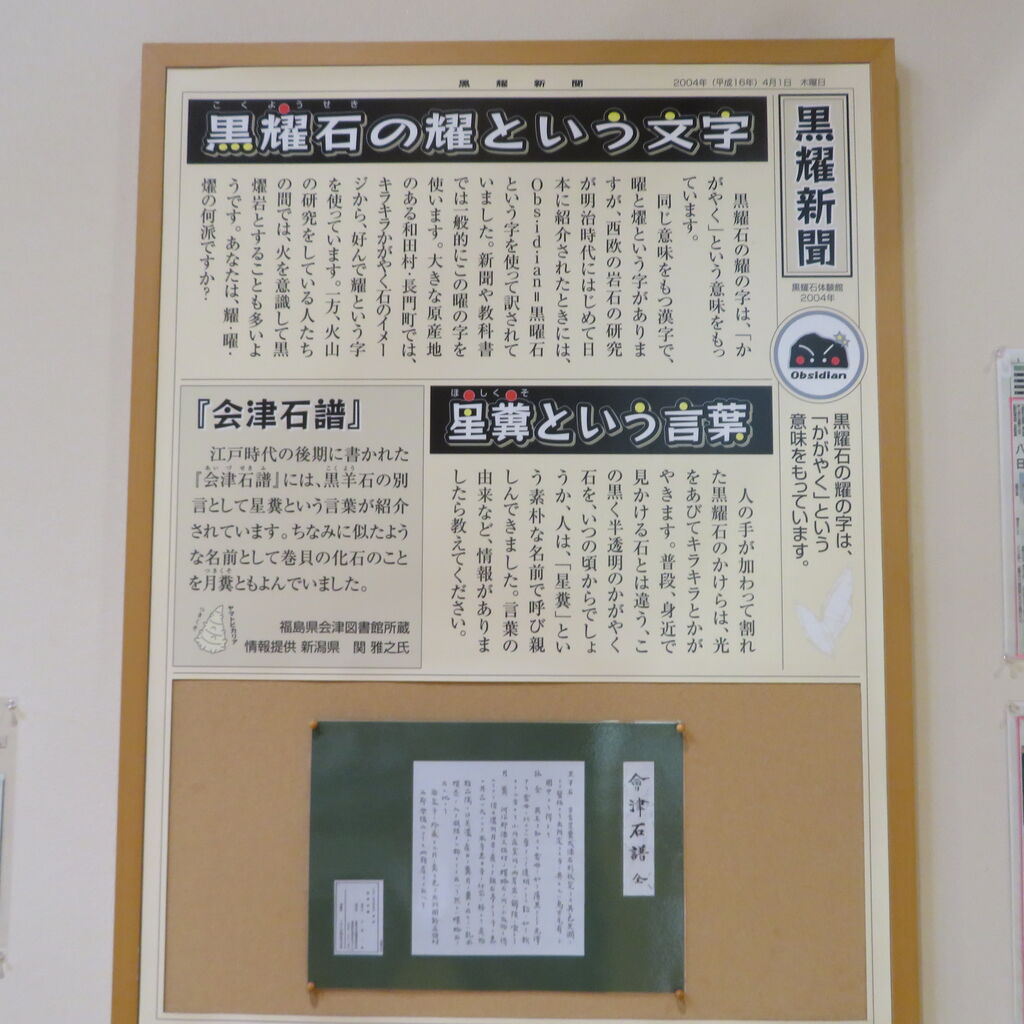 黒耀新聞
2004年（平成16年）4月1日　木曜日
黒耀新聞
黒耀石体験館
2004年
Obsidian
黒耀石の耀の字は、
「かがやく」という
意味をもっています。
こくようせき
黒耀石の耀という文字
黒耀石の耀の字は、「か
がやく」という意味をもっ
ています。
同じ意味をもつ漢字で、
曜と燿という字がありま
すが、西欧の岩石の研究
が明治時代にはじめて日
本に紹介されたときには、
Obsidian＝黒曜石
という字を使って訳されて
いました。新聞や教科書
では一般的にこの曜の字を
使います。大きな原産地
のある和田村・長門町では、
キラキラかがやく石のイメー
ジから、好んで耀という字
を使っています。一方、火山
の研究をしている人たち
の間では、火を意識して黒
燿岩とすることも多いよ
うです。あなたは、耀・曜・
燿の何派ですか？
ほしくそ
星糞という言葉
人の手が加わって割れ
た黒耀石のかけらは、光
をあびてキラキラとかが
やきます。普段、身近で
見かける石とは違う、こ
の黒く半透明のかがやく
石を、いつの頃からでしょ
うか、人は、「星糞」とい
う素朴な名前で呼び親
しんできました。言葉の
由来など、情報がありま
したら教えてください。
『会津石譜』
江戸時代の後期に書かれた
あいづせきふ
こくよう
『会津石譜』には、黒羊石の別
言として星糞という言葉が紹介
されています。ちなみに似たよう
な名前として巻貝の化石のこと
つきくそ
を月糞ともよんでいました。
ヤマトビカリア
福島県会津図書館所蔵
情報提供 新潟県　関 雅之氏
會津石譜 全